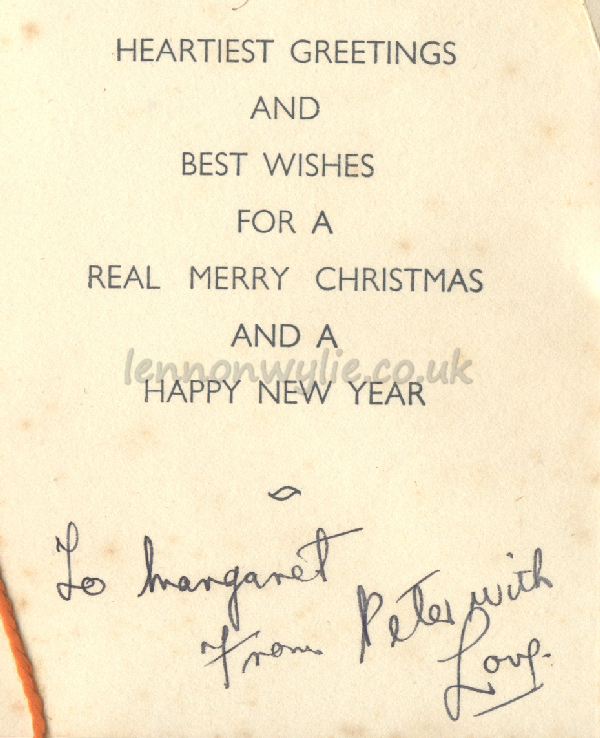 HEARTIEST GREETINGS
AND
BEST WISHES
FOR A
REAL MERRY CHRISTMAS
AND A
lennonwylie.co.uk
HAPPY NEW YEAR
To Margaret
From Peter with
Love.